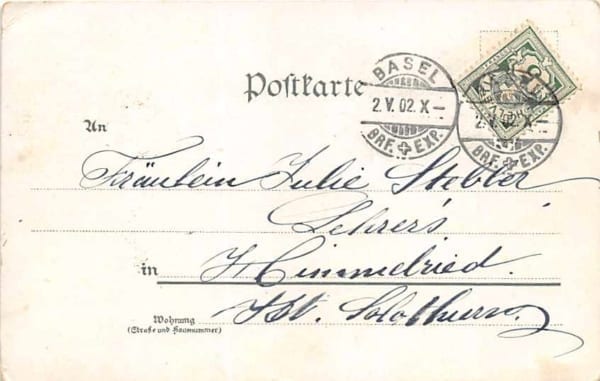 Postkarte
BASEL
2.V.02.X—
BRF. EXP.
BASEL
2.V.02.X—
BRF. EXP.
An
Fräulein Julie Stebler
Lehrer's
in Himmelried.
Kt. Solothurn
Wohnung
(Straße und Hausnummer)